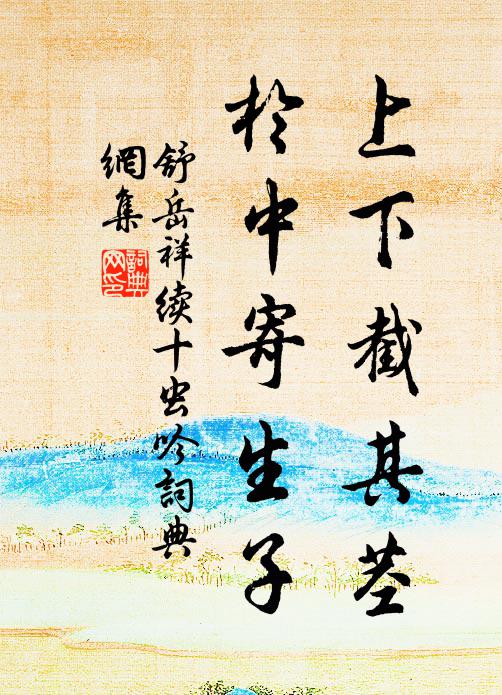 上下截其莖
於中寄生子
舒岳祥續十虫吟詞典
網集
詞典
网印